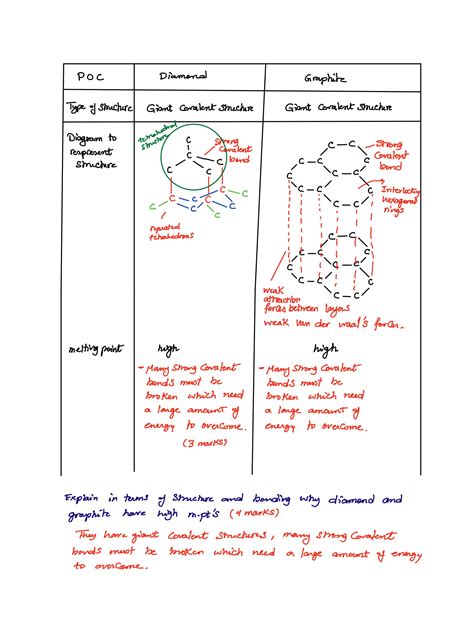 POC Diamond Graphite
Type of structure Giant Covalent Structure Giant Covalent Structure
Diagram to
respresent
structure
tetrahedral
structure
Strong
Covalent
bond
repeated
tetrahedrons
Strong
Covalent
bond
Interlocking
hexagonal
rings
weak
attraction
forces between layers
weak van der waal's forces.
melting point high high
- Many Strong Covalent
bonds must be
broken which need
a large amount of
energy to overcome.
(3 marks)
- Many Strong Covalent
bonds must be
broken which need
a large amount of
energy to overcome.
Explain in terms of structure and bonding why diamond and
graphite have high m.pt's (4 marks)
They have giant covalent structures, many strong Covalent
bonds must be broken which need a large amount of energy
to overcome.